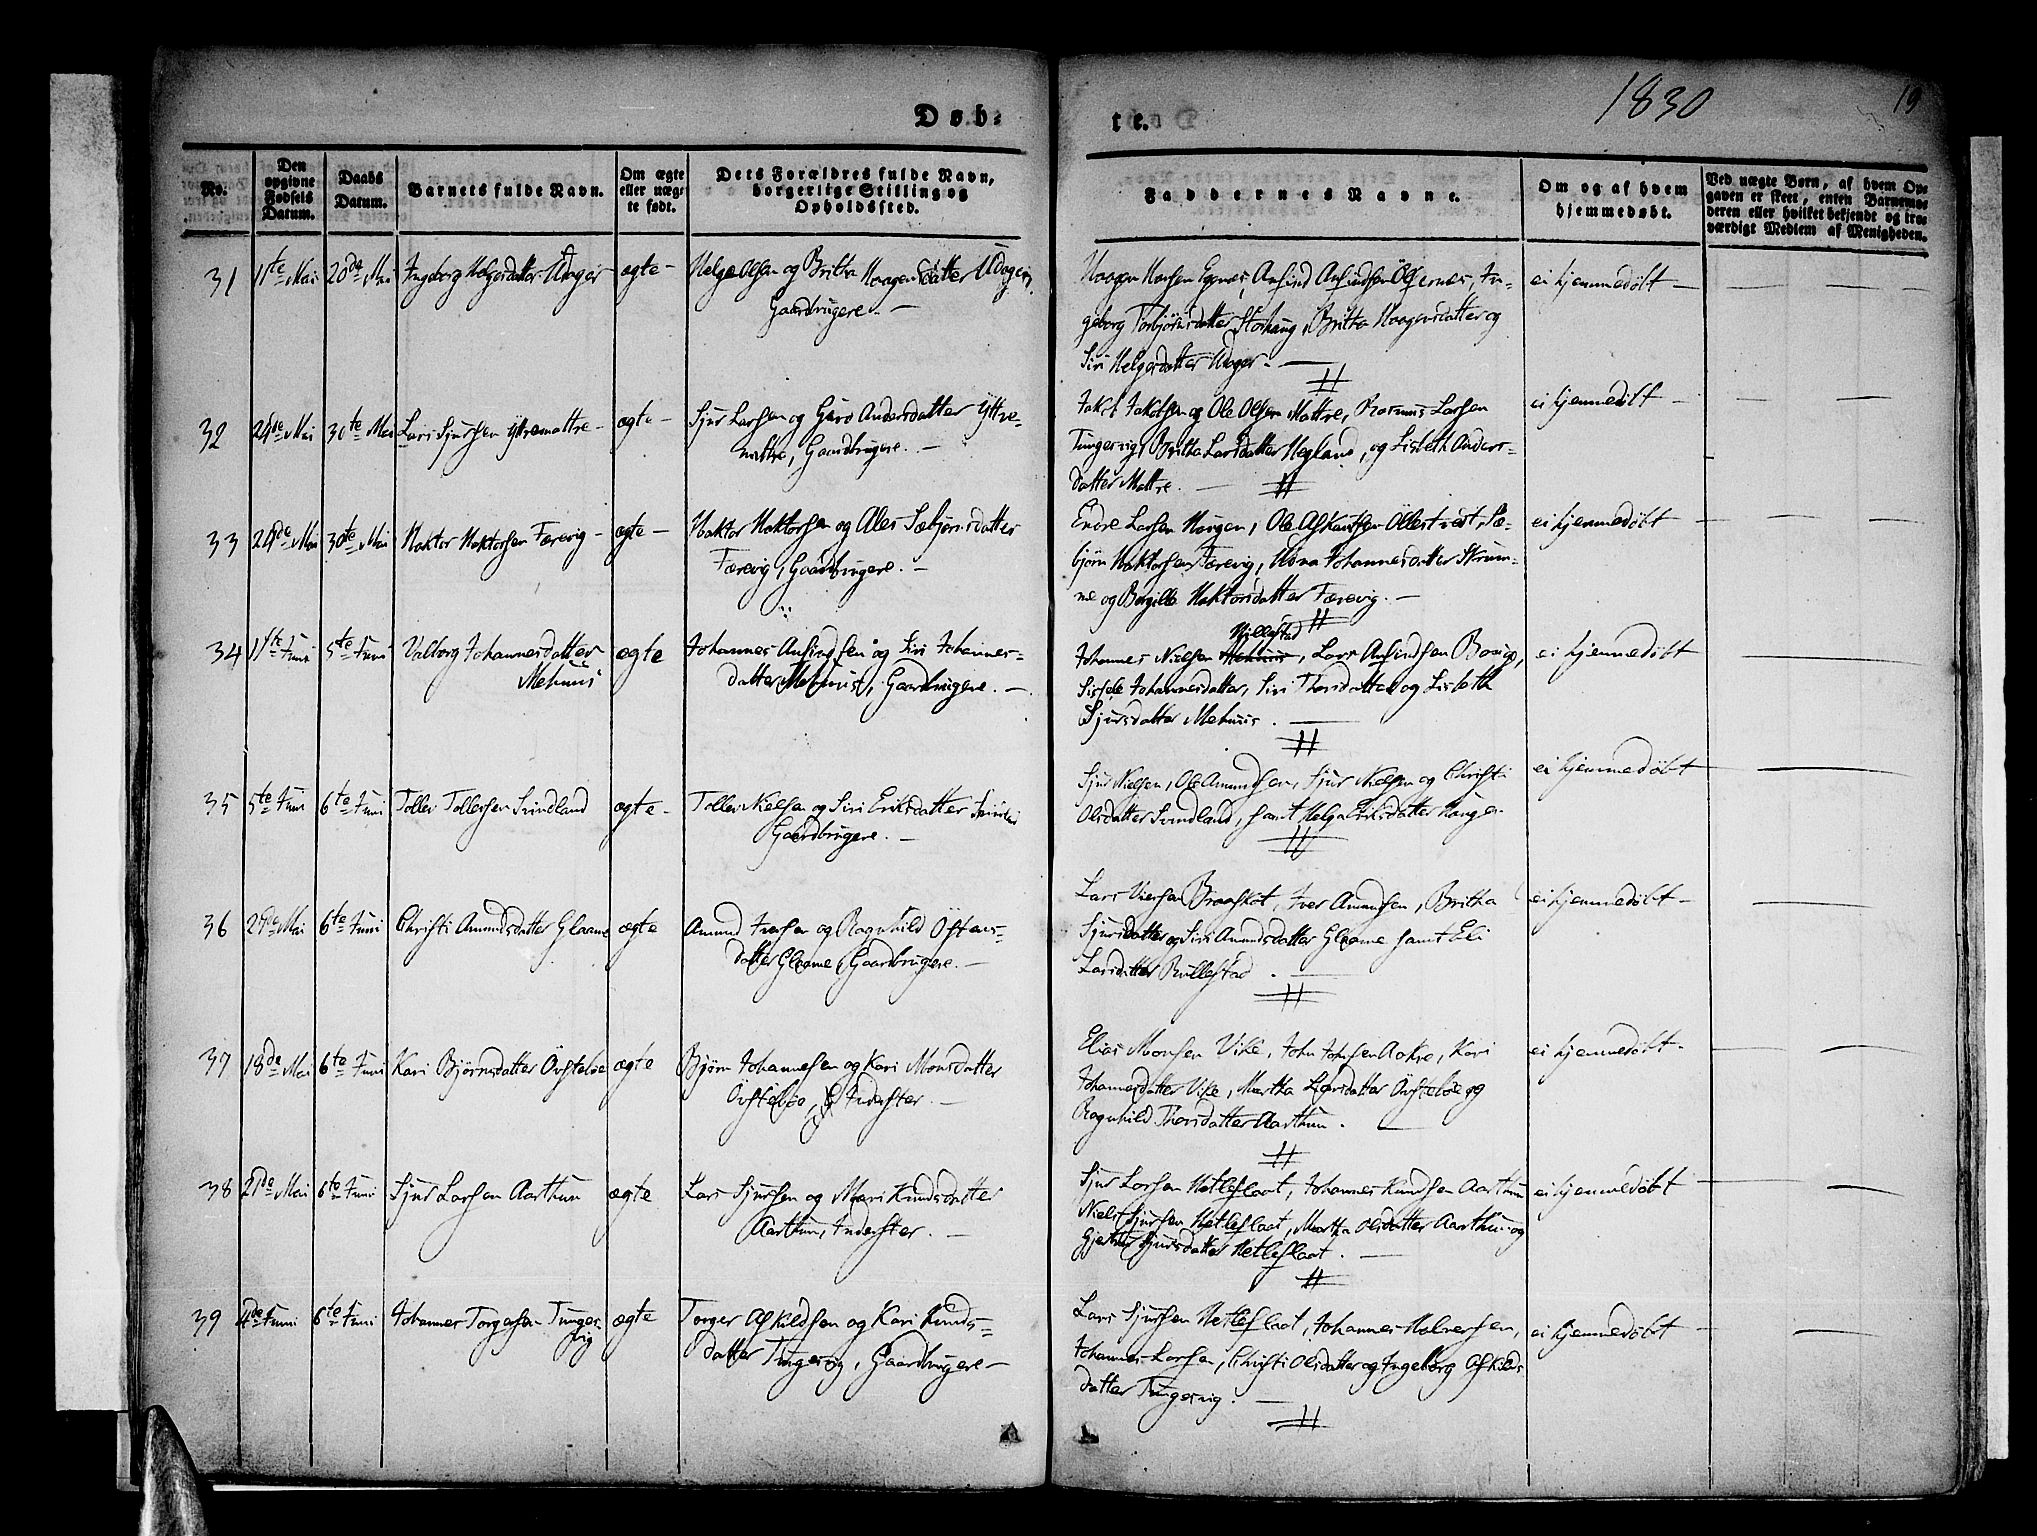 Døb-
te.
1830
19
No.
Den opgivne Fødsels Datum.
Daabs Datum.
Barnets fulde Navn.
Om ægte eller uægte født.
Dets Forældres fulde Navn, borgerlige Stilling og Opholdssted.
Faddernes Navne.
Om og af hvem hjemmedøbt.
Ved uægte Børn, af hvem Opgaven er skeet, enten Barnemoderen eller hvilket bekjendt og troværdigt Medlem af Menigheden.
31 11te Mai 20de Mai Ingeborg Helgesdatter ægte Helge Olsen og Britha Haagensdatter
Gaardbrugere.
Haagen Egnes, Anfind Anfindsen Ølfernes, In-
geborg Torbjørnsdatter Storhaug, Britha Haagensdatter og
Siri Helgesdatter
ei hjemmedøbt
32 24de Mai 30te Mai Lars Sjursen Ytremattre ægte Sjur Larsen og Guro Andersdatter Yttre-
mattre, Gaardbrugere.
Jakob Jakobsen og Ole Olsen Mattre, Rasmus Larsen
Tungesvig, Britha Larsdatter Hegland, og Lisbeth Anders-
datter Mattre.
ei hjemmedøbt
33 24de Mai 30te Mai Haktor Haktorsen Færevig ægte Haktor Haktorsen og Ales Sæbjørnsdatter
Færevig, Gaardbrugere.
Endre Larsen Haugen, Ole Øllestvedt, Sæ-
bjørn Haktorsen Færevig, Johannesdatter Skrum-
me og Borgille Haktorsdatter Færevig.
ei hjemmedøbt
34 1ste Juni 5te Juni Valborg Johannesdatter
Mehuus
ægte Johannes Anfindsen og Siri Johannes-
datter Mehuus, Gaardbrugere.
Hillestad
Johannes Nielsen Mehuus, Lars Anfindsen
Sissele Johannesdatter, Siri Thorsdatter og Lisbeth
Sjursdatter Mehuus.
ei hjemmedøbt
35 5te Juni 6te Juni Tollev Tollevsen Svindland ægte Tollev Nielsen og Siri Eriksdatter
Gaardbrugere.
Sjur Nielsen, Ole Amundsen, Sjur Nielsen og Christi
Olsdatter Svindland, samt Helga Eriksdatter Haugen
ei hjemmedøbt
36 Mai 6te Juni Christi Amundsdatter Glaame ægte Amund Iversen og Ragnhild Østens-
datter Glaame, Gaardbrugere.
Lars Braaskot, Iver Amundsen, Britha
Sjursdatter og Siri Amundsdatter Glaame samt Eli
Larsdatter Rullestad.
ei hjemmedøbt
37 18de Mai 6te Juni Kari Bjørnsdatter Østebøe ægte Bjørn Johannesen og Kari Monsdatter
Østebøe, Inderster.
Elias Monsen Vike, John Johnsen Aakre, Kari
Johannesdatter Vike, Martha Larsdatter Østebøe og
Ragnhild Thorsdatter Aarthun.
ei hjemmedøbt
38 21de Mai 6te Juni Sjur Larsen Aarthun ægte Lars Sjursen og Mari Knudsdatter
Aarthun, Inderster.
Sjur Larsen Netleflaat, Johannes Knudsen Aarthun
Niels Sjursen Netleflaat, Martha Olsdatter Aarthun og
Sjursdatter Netleflaat.
ei hjemmedøbt
39 4de Juni 6te Juni Johannes Torgersen Tunges-
vig
ægte Torger Askildsen og Kari Knuds-
datter Tungesvig, Gaardbrugere
Lars Sjursen Netleflaat, Johannes Halversen,
Johannes Larsen, Christi Olsdatter og Ingeborg Askilds
datter Tungesvig.
ei hjemmedøbt